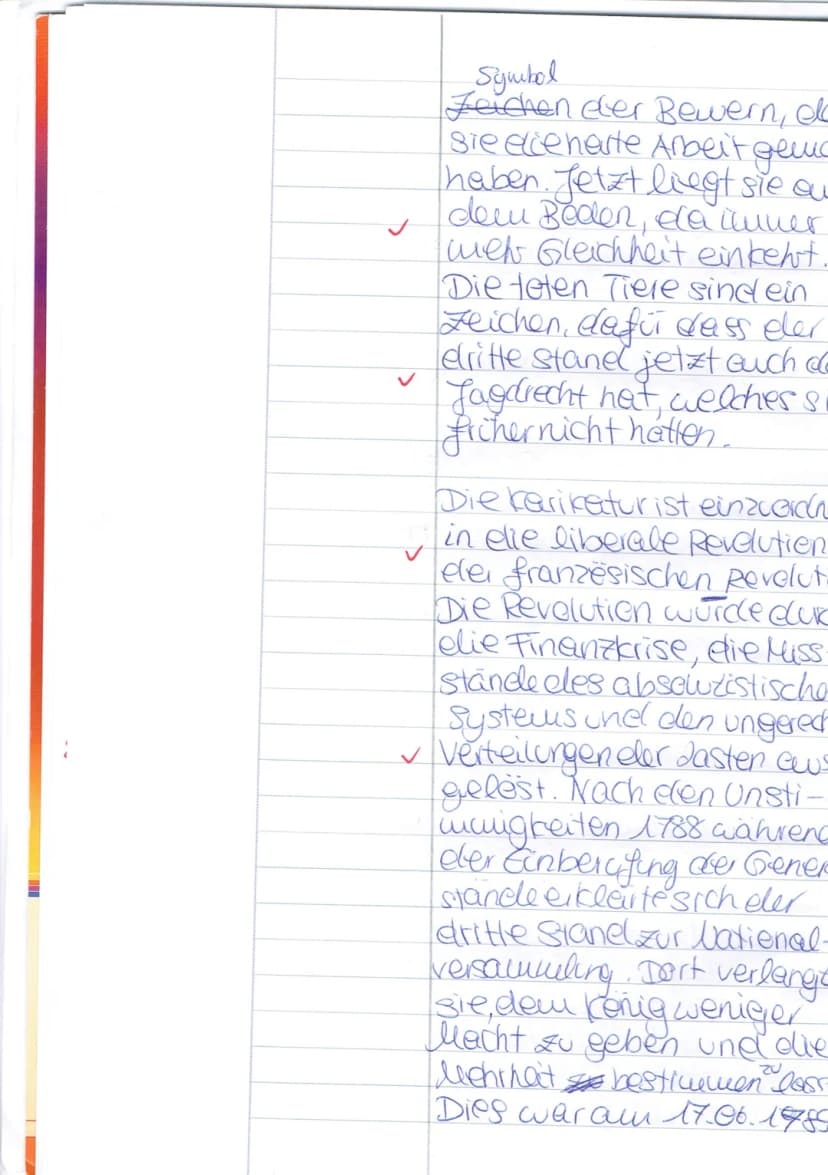 Symbol
Zeichen der Bewern, da
sie die harte Arbeit gema
haben. Jetzt liegt sie au
dem Boden, da immer
mehr Gleichheit einkehrt.
Die toten Tiere sind ein
Zeichen, dafür dass der
dritte Stand jetzt auch da
Jagdrecht hat, welches si
früher nicht hatten.
Die Karikatur ist einzuordn
in die liberale Revolution
der französischen Revolut
Die Revolution wurde dur
die Finanzkrise, die Miss-
stände des absolutistische
Systems und den ungerech
Verteilungen der Lasten aus
gelöst. Nach den Unsti-
mmigkeiten 1788 während
der Einberufung der Gener
stände erklärte sich der
dritte Stand zur National-
versammlung. Dort verlangt
sie, dem König weniger
Macht zu geben und die
Mehrheit bestimmen zu lass
Dies war am 17.06.1789